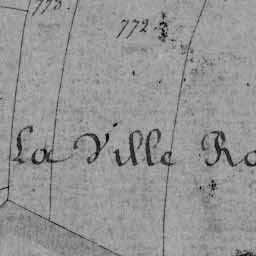 778.
772.
La Ville Ro